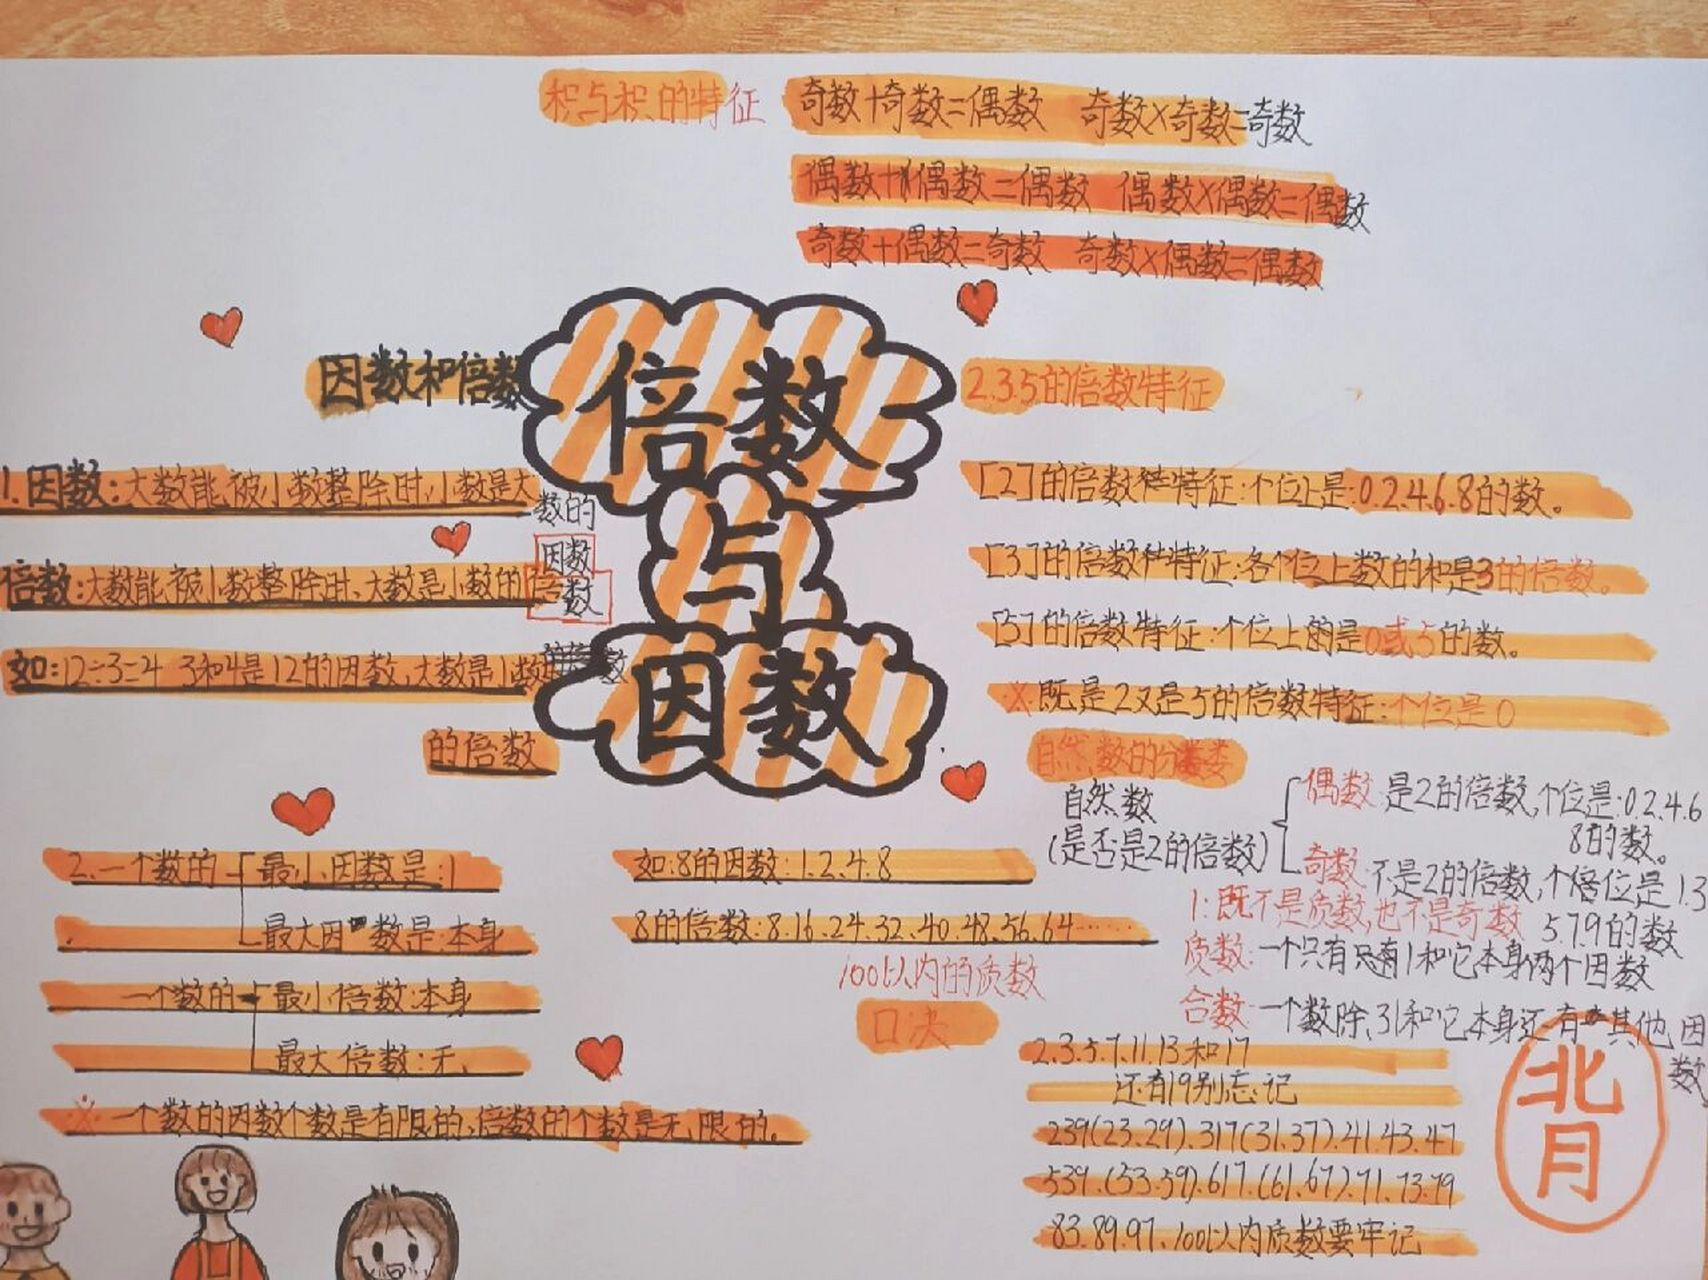 积与积的特征
奇数+奇数=偶数 奇数×奇数=奇数
偶数+偶数=偶数 偶数×偶数=偶数
奇数+偶数=奇数 奇数×偶数=偶数
倍数
与
因数
因数和倍数
1.因数:大数能被小数整除时,小数是大
数的
因数
倍数:大数能被小数整除时、大数是小数的倍数
如:12÷3=4 3和4是12的因数,大数是小数
的倍数
2.一个数的 最小因数是:1
最大因数是:本身
一个数的 最小倍数:本身
最大倍数:无、
※一个数的因数个数是有限的、倍数的个数是无限的。
如:8的因数:1.2.4.8
8的倍数:8.16.24.32.40.48.56.64……
2.3.5的倍数特征
[2]的倍数特征:个位上是:0.2.4.6.8的数。
[3]的倍数特征:各个位上数的和是3的倍数。
[5]的倍数特征:个位上的是0或5的数。
※既是2又是5的倍数特征:个位是0
自然数的分类
自然数
(是否是2的倍数)
偶数:是2的倍数,个位是:0.2.4.6
8的数。
奇数:不是2的倍数,个位是1.3
5.7.9的数
1:既不是质数,也不是奇数
质数:一个只有只有1和它本身两个因数
合数:一个数除了1和它本身还有其他因
数
100以内的质数
口决
2.3.5.7.11.13和17
还有19别忘记
239(23.29).317(31.37).41.43.47
539.(53.59).617.(61.67).71.73.79
83.89.97.100以内质数要牢记
北
月